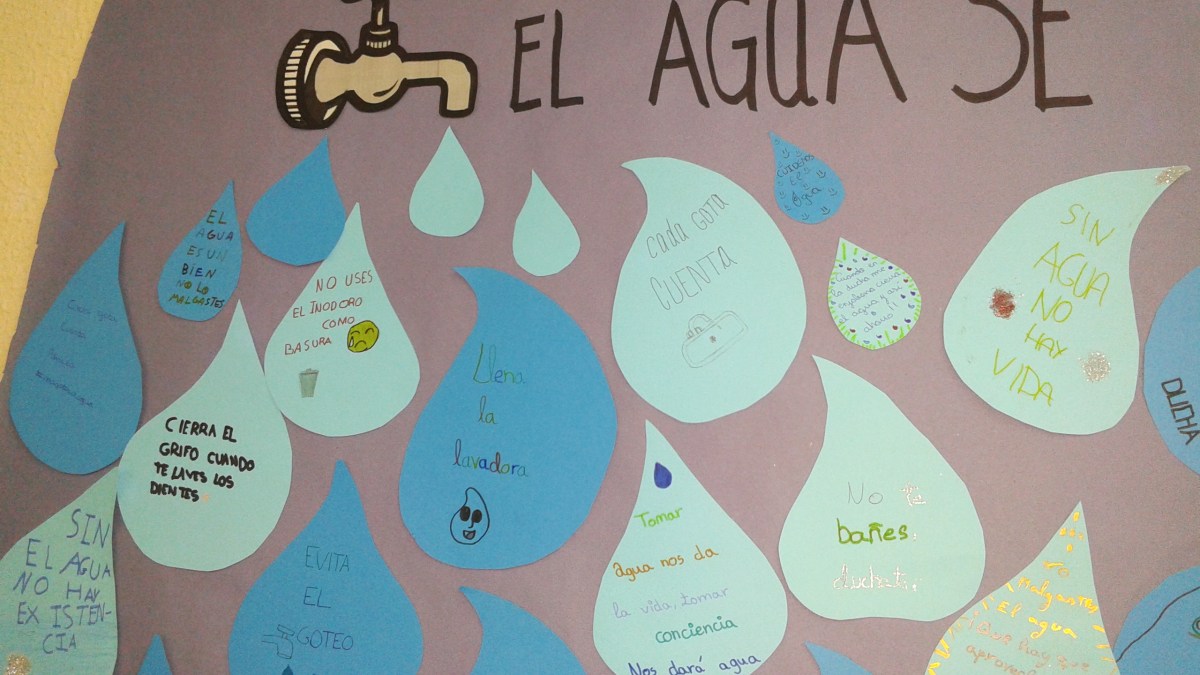 EL AGUA SE
EL
AGUA
ES UN
BIEN
NO LO
MALGASTES
NO USES
EL INODORO
COMO
BASURA
CADA GOTA
CUENTA
CUIDEMOS
EL
Agua
Cuando en
la ducha me
el agua y así
ahorro!!
SIN
AGUA
NO
HAY
VIDA
Cada gota
CIERRA EL
GRIFO CUANDO
TE LAVES LOS
DIENTES
Llena
la
lavadora
DUCHA
SIN
EL AGUA
NO HAY
EXISTEN-
CIA
EVITA
EL
GOTEO
Tomar
agua nos da
la vida, tomar
conciencia
Nos dará agua
No te
bañes,
duchate
NO
Malgastes
El agua